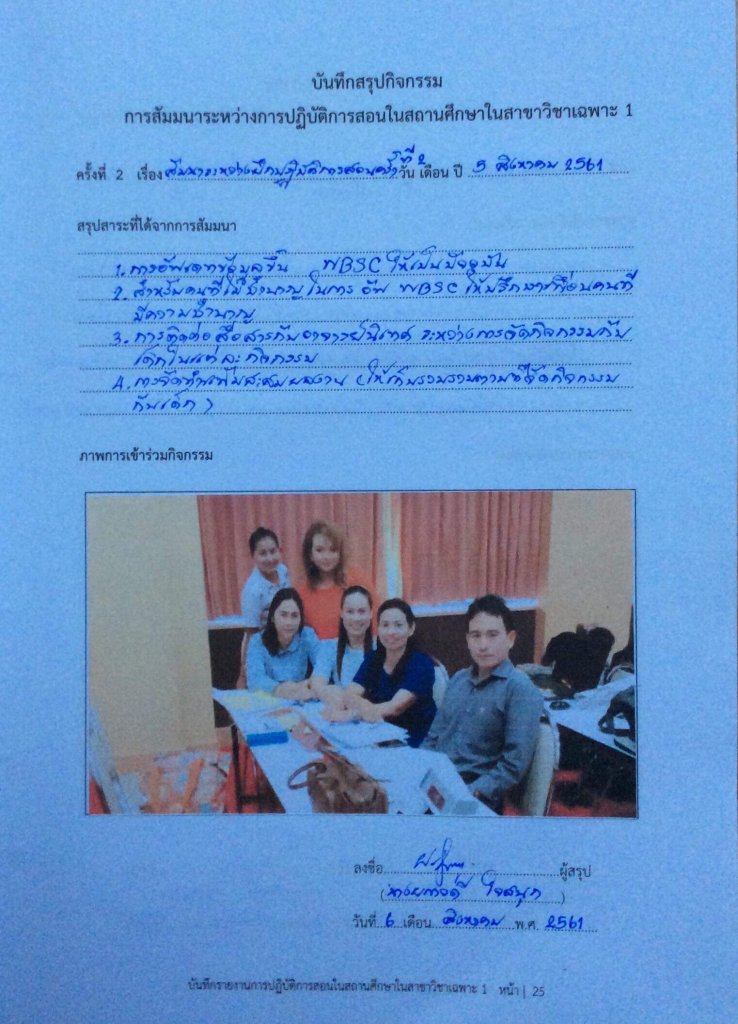 บันทึกสรุปกิจกรรม
การสัมมนาระหว่างการปฏิบัติการสอนในสถานศึกษาในสาขาวิชาเฉพาะ 1
ครั้งที่ 2 เรื่อง สัมมนาระหว่างฝึกปฏิบัติการสอนครั้งที่ 2 วัน เดือน ปี 5 สิงหาคม 2561
สรุปสาระที่ได้จากการสัมมนา
1. การอัพเดทข้อมูลขึ้น WBSC ให้เป็นปัจจุบัน
2. สำหรับคนที่ไม่ชำนาญในการ อัพ WBSC ให้ปรึกษาเพื่อนคนที่
มีความชำนาญ
3. การติดต่อสื่อสารกับอาจารย์นิเทศ ระหว่างการจัดกิจกรรมกับ
เด็กในแต่ละกิจกรรม
4. การจัดทำแฟ้มสะสมผลงาน (ให้เก็บรวบรวมงานที่จัดกิจกรรม
กับเด็ก)
ภาพการเข้าร่วมกิจกรรม
ลงชื่อ ผู้สรุป
วันที่ 6 เดือน สิงหาคม พ.ศ. 2561
บันทึกรายงานการปฏิบัติการสอนในสถานศึกษาในสาขาวิชาเฉพาะ 1 หน้า | 25